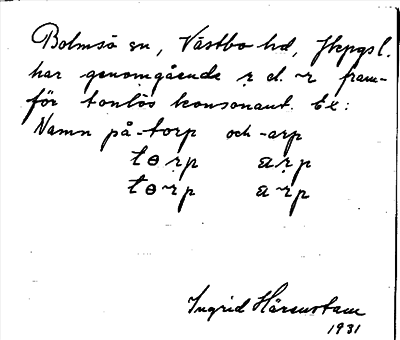 Bolmsö sn, Västbo hd, Jkpgs l.
har genomgående ṛ d. ~r fram-
för tonlös konsonant. Ex:
Namn på -torp och -arp
tɵṛp aṛp
tɵ~rp a~rp
Ingrid
1931